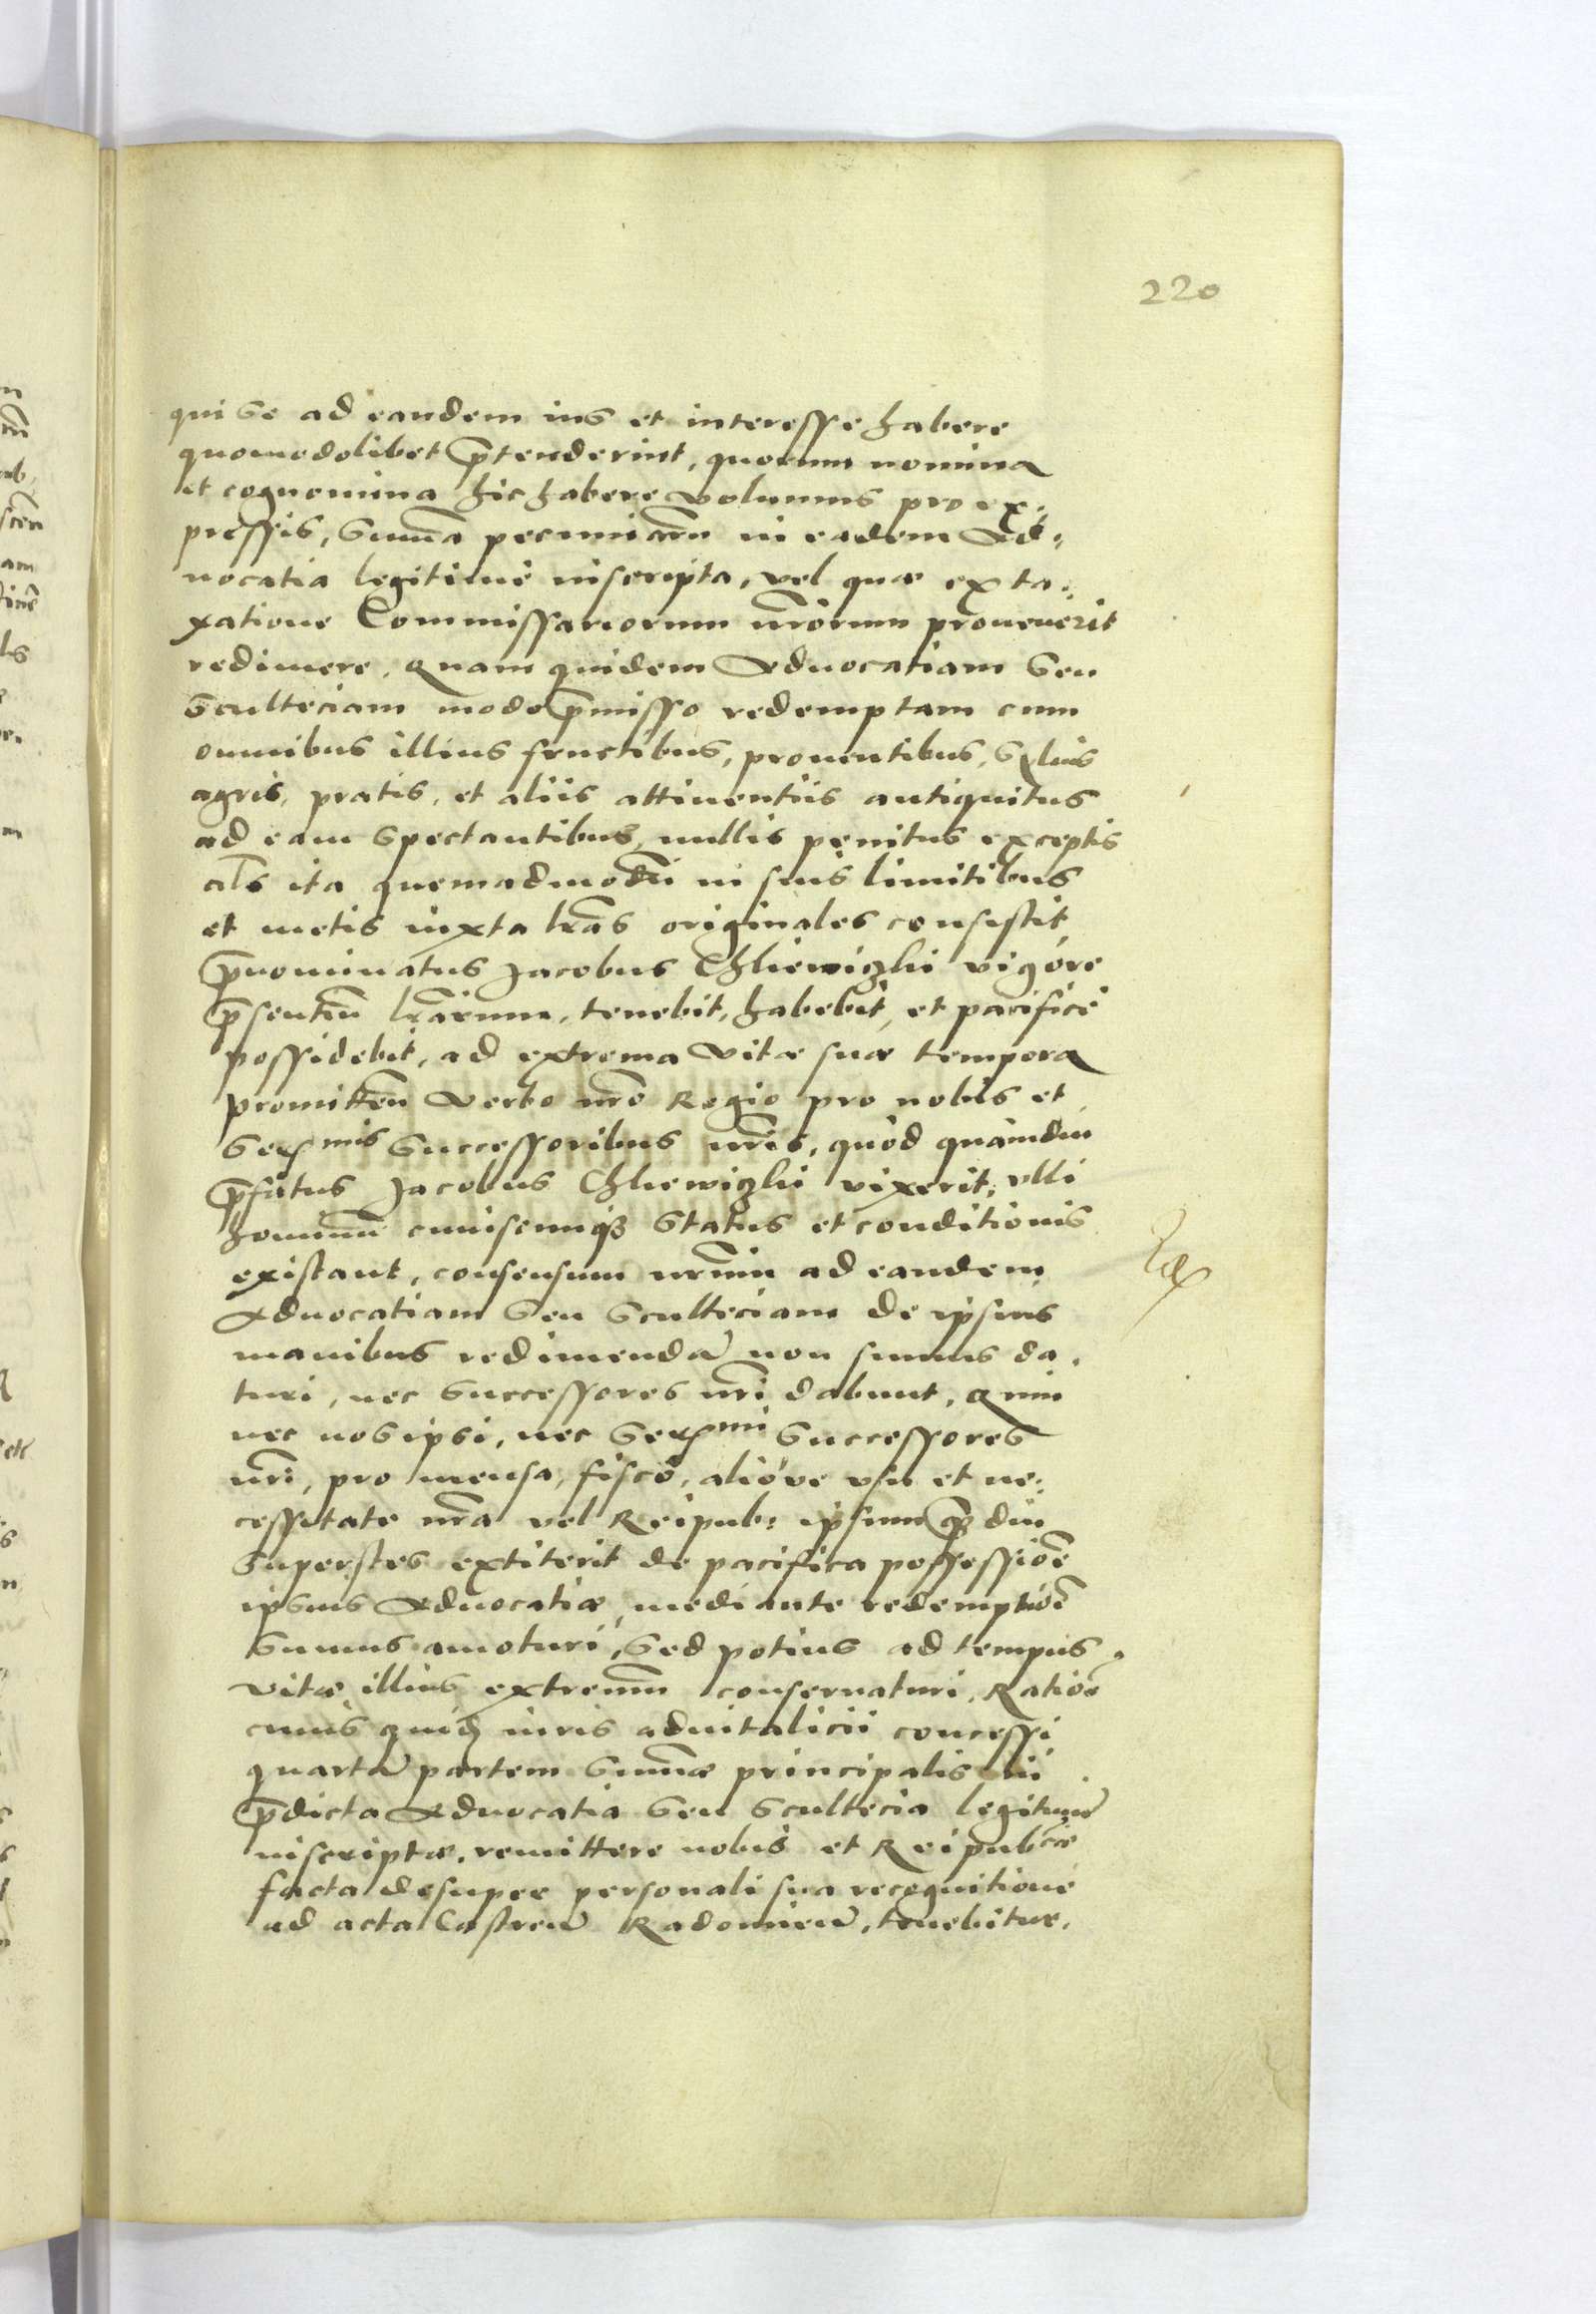 220
qui se ad eandem ius et interesse habere
quomodolibet p̃tenderint, quorum nomina
et cognomina hic habere volumus pro ex:
pressis, sum̃a pecuniarũ in eadem Ad:
uocatia legitimè inscripta, vel quæ ex ta:
xatione Commissariorum nr̃orum prouenerit
redimere. Quam quidem Aduocatiam seu
scultetiam modo p̃misso redemptam cum
omnibus illius fructibus, prouentibus,
agris, pratis, et aliis attinentiis antiquitus
ad eam spectantibus, nullis penitus exceptis
ita quemadmodũ in suis limitibus
et metis iuxta lr̃as originales consistit,
p̃nominatus Jacobus Chliewiczki vigore
p̃sentiũ lr̃arum, tenebit, habebit, et pacificè
possidebit, ad extrema vitæ suæ tempora
promitteñ verbo nr̃o Regio pro nobis et
Ser^mis Successoribus nr̃is, quòd quamdiu
p̃fatus Jacobus Chliewiczki vixerit, vlli
hominũ cuiuscunq3 status et conditionis
existant, consensum nr̃um ad eandem
Aduocatiam seu scultetiam de ipsius
manibus redimendã non sumus da:
turi, nec successores nr̃i dabunt. Quin
nec nos ipsi, nec Ser^mi Successores
nr̃i, pro mensa, fisco, alioue vsu et ne:
cessitate nr̃a vel Reipub: ipsum q̃diu
superstes extiterit de pacifica possessioẽ
ipsius Aduocatiæ, mediante redemptioẽ
sumus amoturi, sed potius ad tempus
vitæ illius extremum conseruaturi. Ratioẽ
cuius quid̃ iuris aduitalicii concessi
quartã partem sum̃æ principalis in
p̃dicta Aduocatia seu scultetia legitimẽ
inscriptæ, remittere nobis et Reipub^cæ
facta desuper personali sua recognitione
ad acta Castreñ Radomieñ, tenebitur.